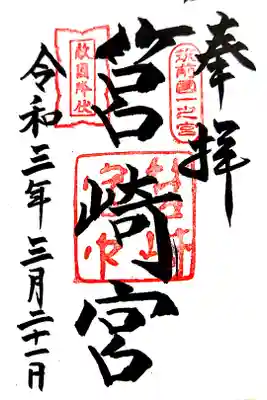 奉拝
筑前國一之宮
筥崎宮
敵國降伏
令和三年三月二十一日